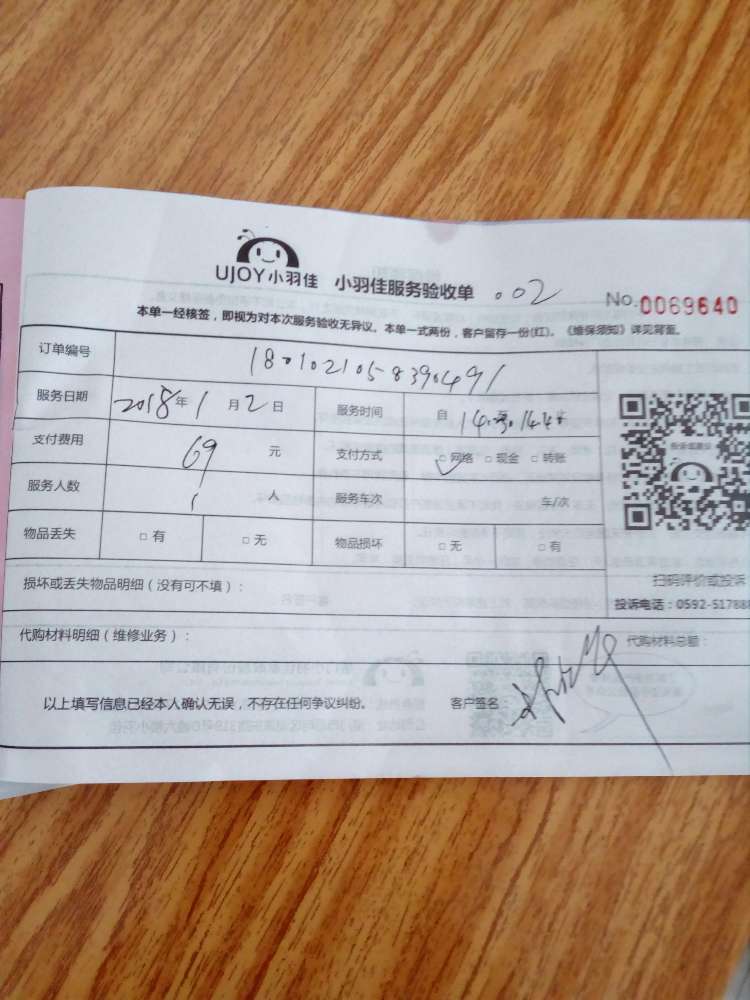 UJOY小羽佳 小羽佳服务验收单 .002 No.0069640
本单一经核签，即视为对本次服务验收无异议。本单一式两份，客户留存一份(红)。《维保须知》详见背面。
订单编号 1801021058390491
服务日期 2018年1月2日 服务时间 自
支付费用 69 元 支付方式 □网络 □现金 □转账
服务人数 1 人 服务车次 车/次
物品丢失 □有 □无 物品损坏 □无 □有
扫码评价或投诉
损坏或丢失物品明细（没有可不填）：
投诉电话：0592-51788
代购材料明细（维修业务）： 代购材料总额：
以上填写信息已经本人确认无误，不存在任何争议纠纷。 客户签名：